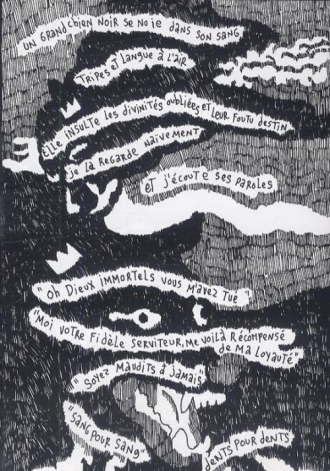 UN GRAND CHIEN NOIR SE NOIE DANS SON SANG
TRIPES ET LANGUE À L'AIR
ELLE INSULTE LES DIVINITÉS OUBLIÉES ET LEUR FOUTU DESTIN
JE LA REGARDE NAÏVEMENT
ET J'ÉCOUTE SES PAROLES
"Oh DIEUX IMMORTELS VOUS M'AVEZ TUÉ"
"MOI VOTRE FIDÈLE SERVITEUR, ME VOILÀ RÉCOMPENSÉ
DE MA LOYAUTÉ"
"SOYEZ MAUDITS À JAMAIS"
"SANG POUR SANG"
DENTS POUR DENTS